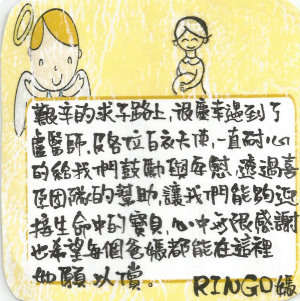 艱辛的求子路上,很慶幸遇到了
盧醫師,及各位白衣天使,一直耐心
的給我們鼓勵與安慰,透過喜
臣團隊的幫助,讓我們能夠迎
接生命中的寶貝,心中無限感謝
也希望每個爸媽都能在這裡
如願以償。 RINGO媽